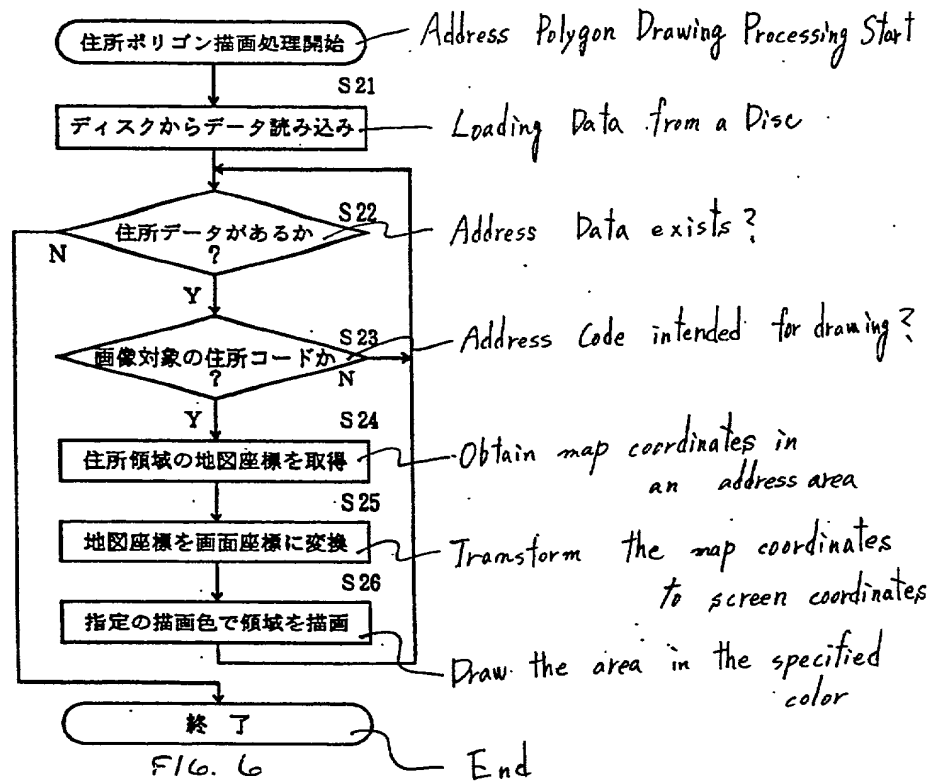 住所ポリゴン描画処理開始
Address Polygon Drawing Processing Start
S21
ディスクからデータ読み込み
Loading Data from a Disc
S22
住所データがあるか
?
N
Address Data exists?
Y
S23
画像対象の住所コードか
?
N
Address Code intended for drawing?
Y
S24
住所領域の地図座標を取得
Obtain map coordinates in
an address area
S25
地図座標を画面座標に変換
Transform the map coordinates
to screen coordinates
S26
指定の描画色で領域を描画
Draw the area in the specified
color
終了
End
FIG. 6